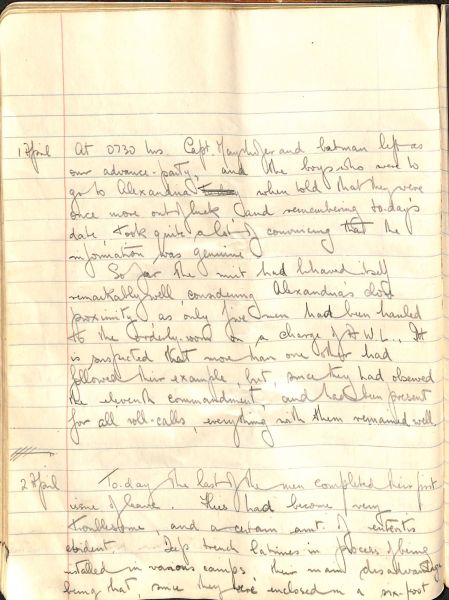 1 April At 0730 hrs. Capt. Mayhofer and batman left as
our advance-party, and the boys who were to
go to Alexandria when told that they were
once more out of luck and remembering to-day's
date, took quite a lot of convincing that the
information was genuine.
So far the unit had behaved itself
remarkably well, considering Alexandria's close
proximity as only five men had been hauled
to the orderly-room on a charge of A.W.L.. It
is suspected that more than one other had
followed their example, but, since they had observed
the eleventh commandment and had been present
for all roll-calls, everything with them remained well.
2 April To-day the last of the men completed their first
issue of leave. Flies had become very
troublesome, and a certain amt. of enteritis
evident. Deep trench latrines in process of being
installed in various camps their main disadvantage
being that since they were enclosed in a six-foot